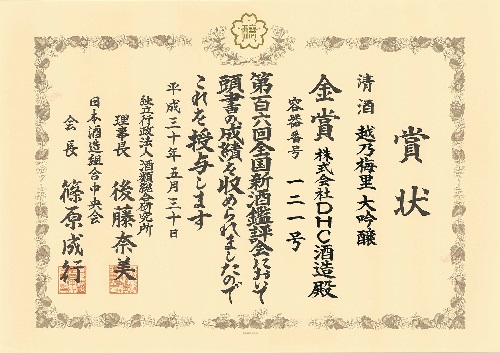 賞状
清酒 越乃梅里 大吟醸
金賞 株式会社DHC酒造殿
容器番号 一二一号
第百六回全国新酒鑑評会において
頭書の成績を収められましたので
これを授与します
平成三十年五月三十日
独立行政法人 酒類総合研究所
理事長 後藤奈美
日本酒造組合中央会
会長 篠原成行